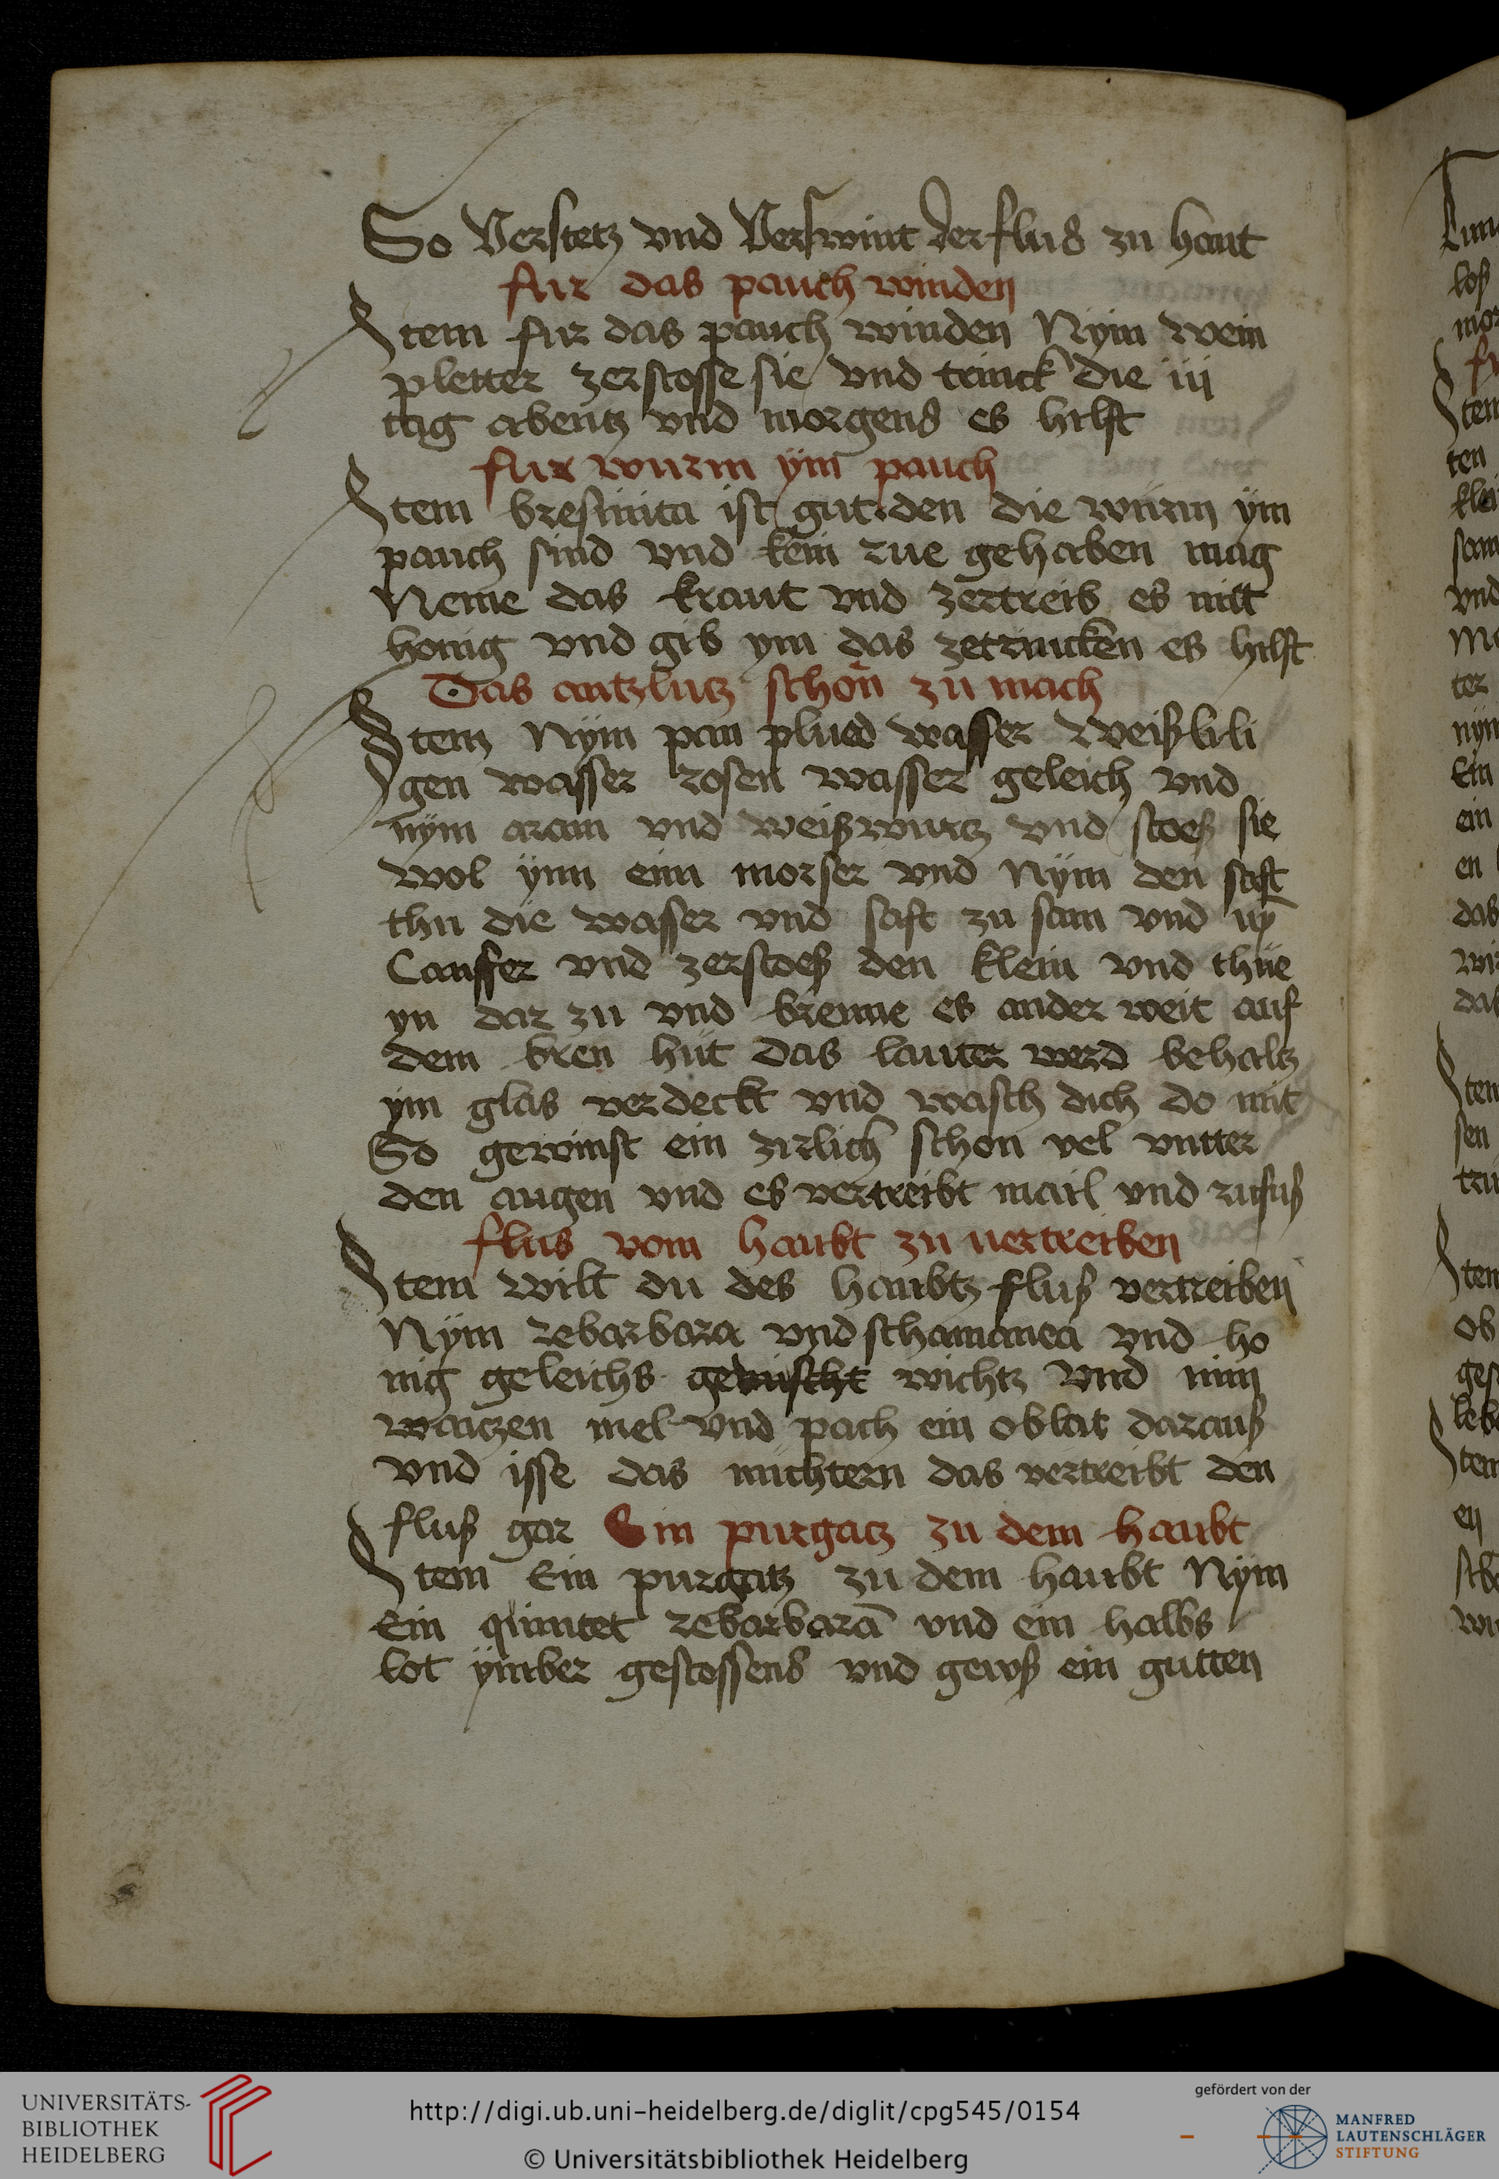 So Verstetz vnd Verswint der flus zu hant
fur das pauch winden
Item fur das pauch winden Nÿm wein
pletter zerstosse sie vnd trinck die iij
tag abentz vnd morgens es hilft
fur wurm ÿm pauch
Item bresinita ist gut den die würm ÿm
pauch sind vnd kein rue gehaben mag
Neme das kraut vnd zertreib es mit
honig vnd gib ym das zetrincken es hilft
Das antzlutz schon zu mach
Item Nÿm pan plued wasser weiß lili
gen wasser rosen wasser geleich vnd
nÿm aram vnd weißwurtz vnd stoeß sie
wol ÿnn eim morser vnd Nÿm den saft
thu die wasser vnd saft zu sam vnd
Canffer vnd zerstoeß den klein vnd thüe
yn dar zu vnd brenne es ander weit auf
dem bren hüt das lauter werd behaltz
ym glas verdeckt vnd wasch dich do mit
So gewinst ein zirlich schon vel vntter
den augen vnd es vertreibt mail vnd rufuß
flus vom haubt zu uertreiben
Item wilt du des haubtz fluß vertreiben
Nÿm rebarbara vnd schamanea vnd ho
nig geleichs gemischt wichtz vnd nim
waitzen mel vnd pach ein oblat darauß
vnd isse das nüchtern das vertreibt den
fluß gar Ein purgatz zu dem haubt
Item Ein purgatz zu dem haubt Nÿm
Ein quintet rebarbara vnd ein halbs
lot ÿmber gestossens vnd gewß ein gutten
UNIVERSITÄTS-
BIBLIOTHEK
HEIDELBERG
http://digi.ub.uni-heidelberg.de/diglit/cpg545/0154
© Universitätsbibliothek Heidelberg
gefördert von der
MANFRED
LAUTENSCHLÄGER
STIFTUNG